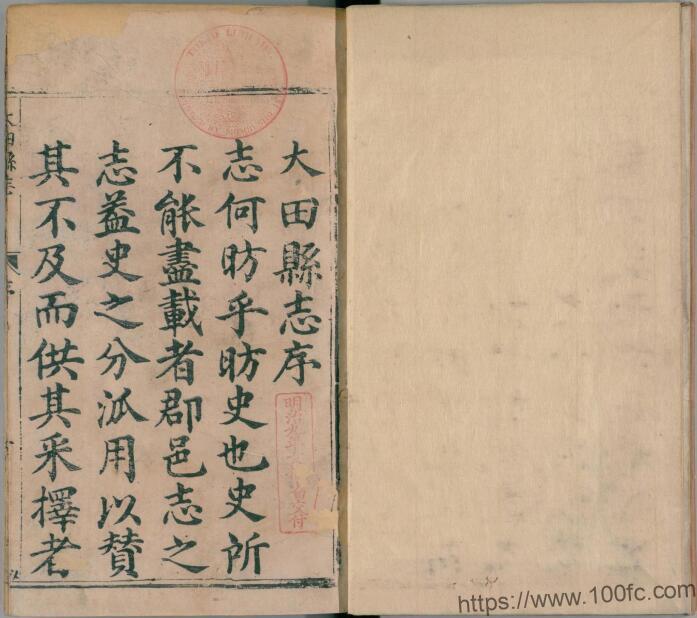 大田縣志序
志何昉乎昉史也史所
不能盡載者郡邑志之
志益史之分派用以贊
其不及而供其采擇者
大田縣志
序
明治
交付
https://www.100fc.com